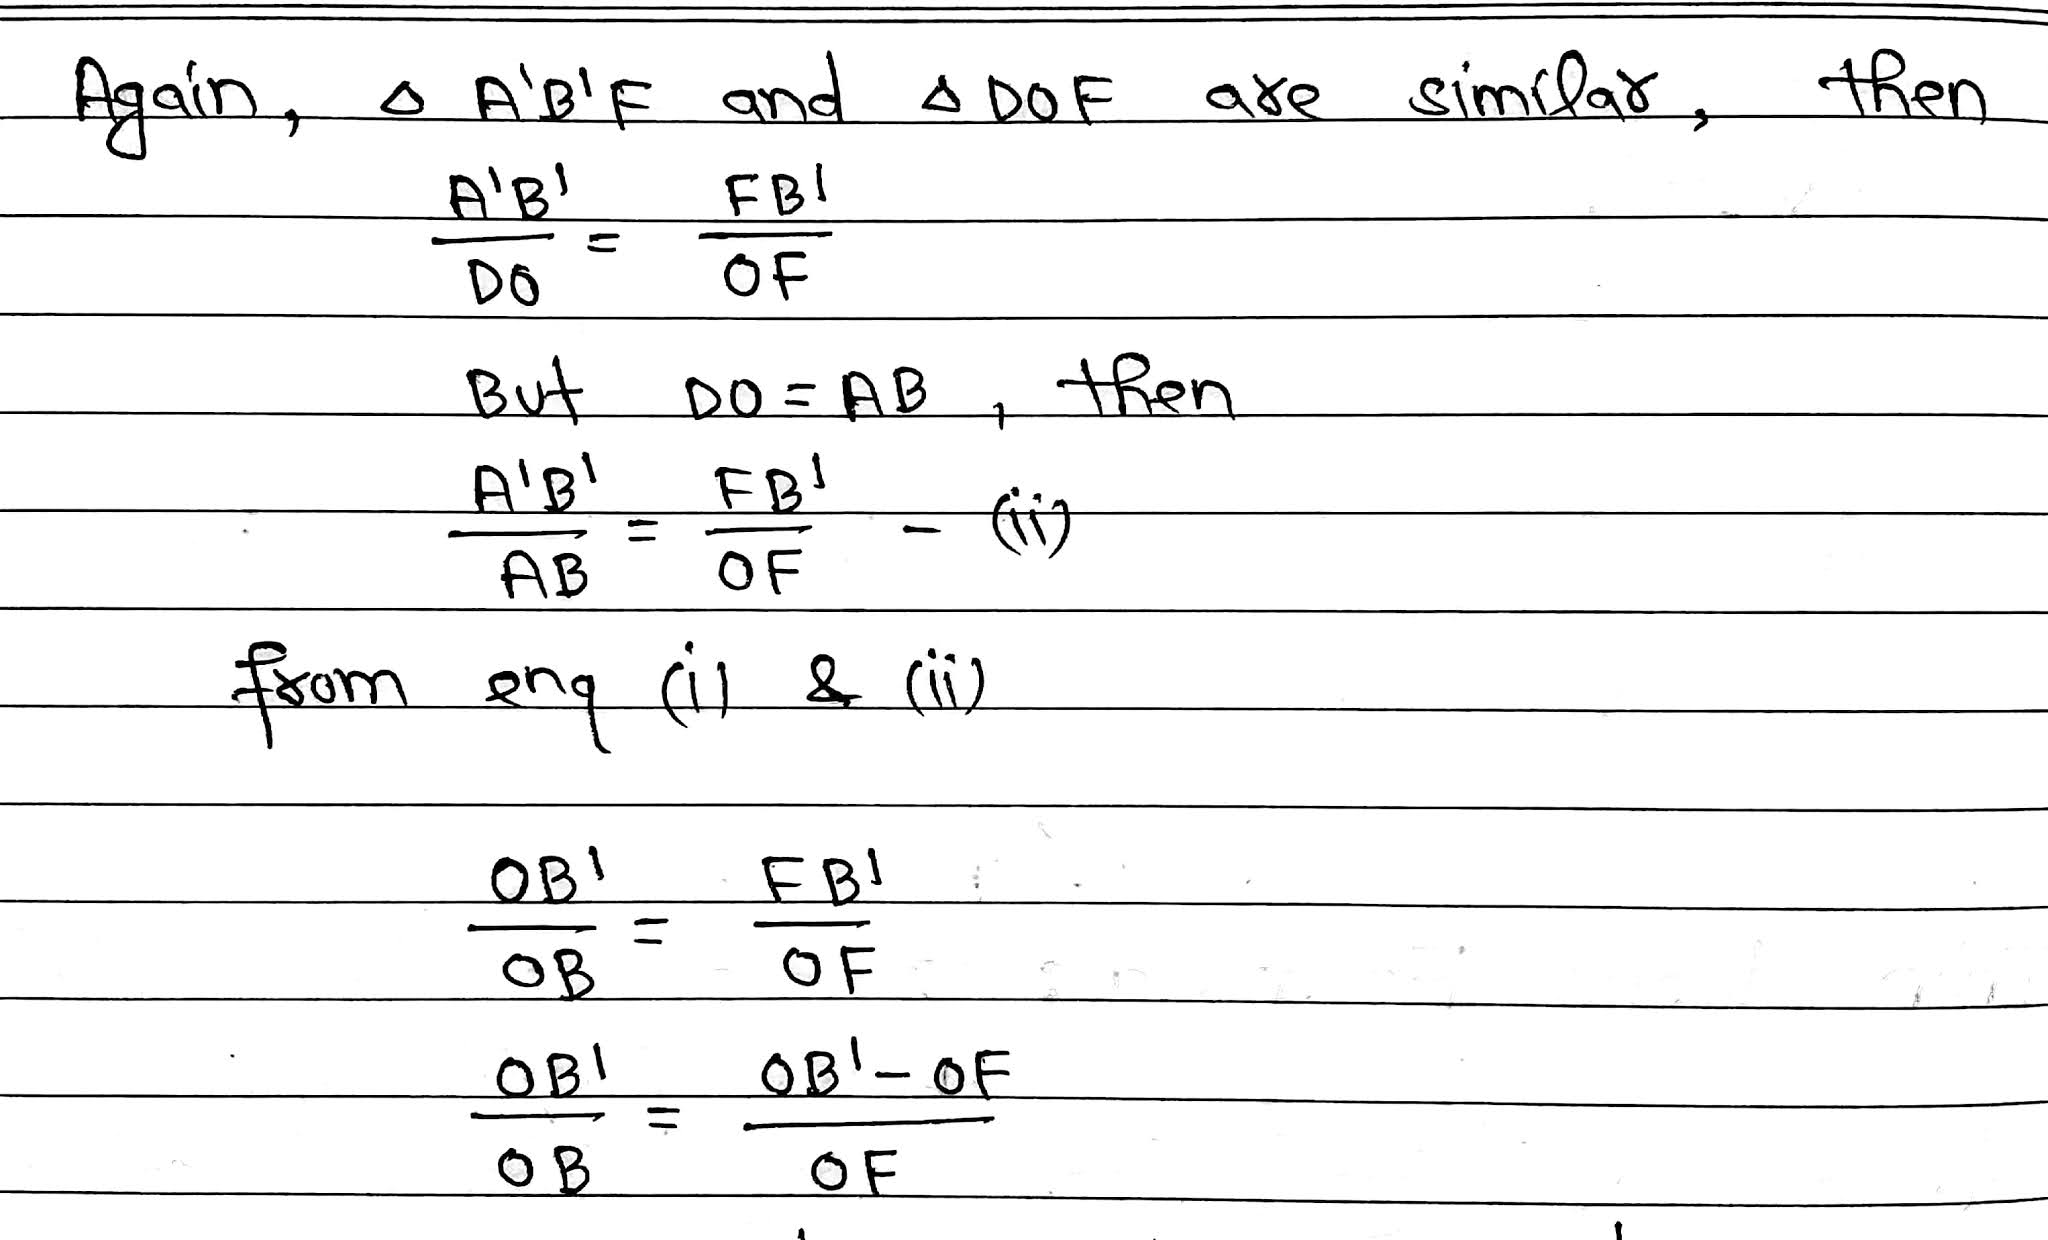 Again, △ A'B'F and △ DOF are similar, then
A'B'/DO = FB'/OF
But DO = AB, then
A'B'/AB = FB'/OF - (ii)
from enq (i) & (ii)
OB'/OB = FB'/OF
OB'/OB = OB'-OF/OF